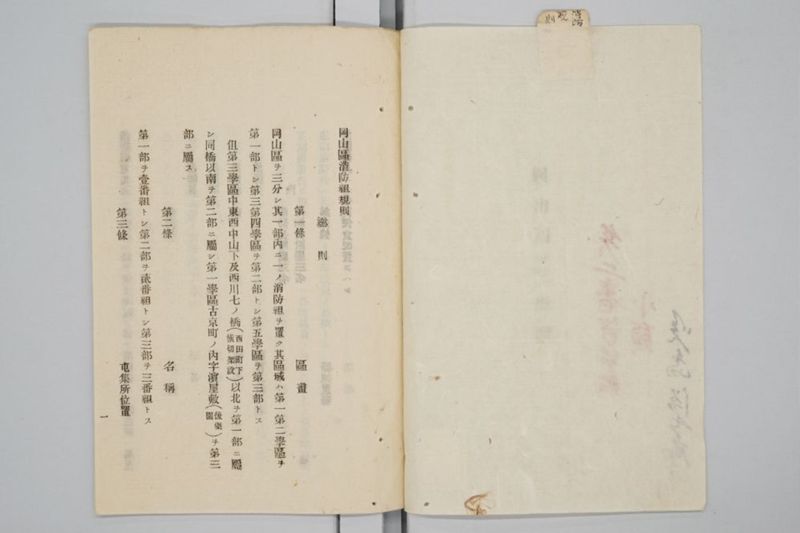 消防
規
則
岡山區消防組規則
總則
第一條 區畫
岡山區ヲ三分シ其一部內ニ一ノ消防組ヲ置ク其區域ハ第一第二學區ヲ
第一部トシ第三第四學區ヲ第二部トシ第五學區ヲ第三部トス
但第三學區中東西中山下及西川七ノ橋(西田町下假切架設)以北ヲ第一部ニ屬
シ同橋以南ヲ第二部ニ屬シ第一學區古京町ノ內字濱屋敷(後樂園)ヲ第三
部ニ屬ス
第二條 名稱
第一部ヲ壹番組トシ第二部ヲ貳番組トシ第三部ヲ三番組トス
第三條 屯集所位置
一